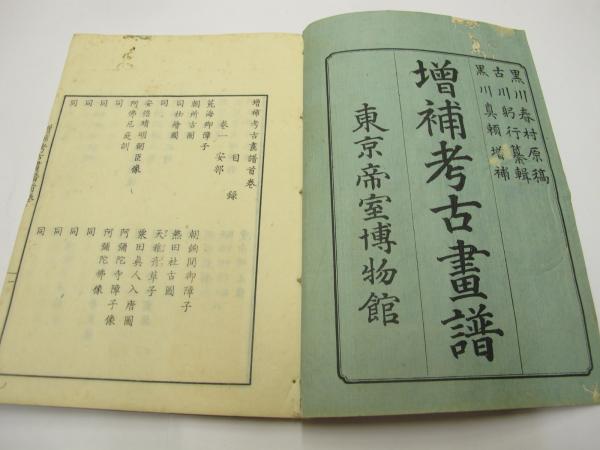 黒川春村原稿
古川躬行纂輯
黒川真頼增補
增補考古畫譜
東京帝室博物館
增補考古畫譜首卷
目録
卷一 安部
荒海御障子
朝所古圖
同社繪圖
安倍晴明朝臣像
阿佛尼庭訓
同
同
同
朝餉間御障子
熱田社古圖
天稚彦草子
粟田眞人入唐圖
阿彌陀寺障子像
阿彌陀佛像
同
同
同